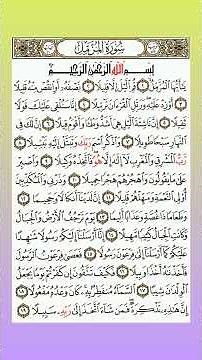 سورة المزمل
بسم الله الرحمن الرحيم
يا أيها المزمل ١ قم الليل إلا قليلا ٢ نصفه أو انقص منه قليلا
٣ أو زد عليه ورتل القرآن ترتيلا ٤ إنا سنلقي عليك قولا
ثقيلا ٥ إن ناشئة الليل هي أشد وطئا وأقوم قيلا ٦ إن لك في
النهار سبحا طويلا ٧ واذكر اسم ربك وتبتل إليه تبتيلا ٨
رب المشرق والمغرب لا إله إلا هو فاتخذه وكيلا ٩ واصبر
على ما يقولون واهجرهم هجرا جميلا ١٠ وذرني والمكذبين
أولي النعمة ومهلهم قليلا ١١ إن لدينا أنكالا وجحيما ١٢
وطعاما ذا غصة وعذابا أليما ١٣ يوم ترجف الأرض والجبال
وكانت الجبال كثيبا مهيلا ١٤ إنا أرسلنا إليكم رسولا شاهدا
عليكم كما أرسلنا إلى فرعون رسولا ١٥ فعصى فرعون الرسول
فأخذناه أخذا وبيلا ١٦ فكيف تتقون إن كفرتم يوما يجعل
الولدان شيبا ١٧ السماء منفطر به كان وعده مفعولا ١٨
إن هذه تذكرة فمن شاء اتخذ إلى ربه سبيلا ١٩